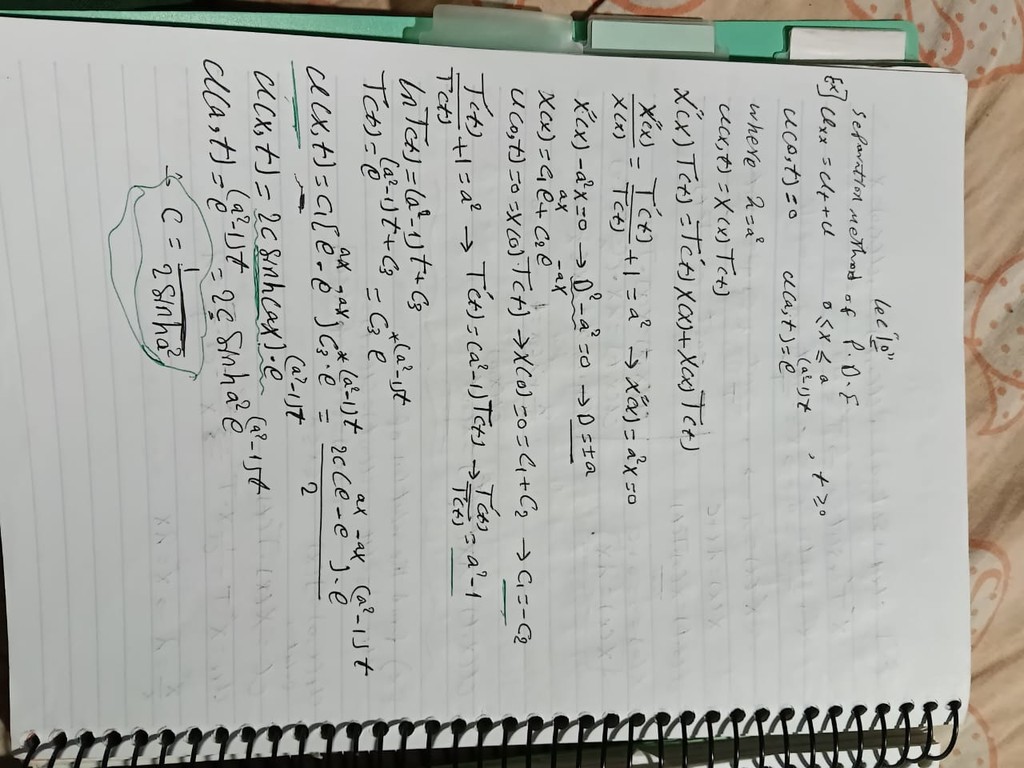 lec "10"
Separation method of P.D.E
Ex] Uxx = Ut + U   0 < x ≤ a
U(0,t)=0   U(a,t)=e^(a²-1)t , t ≥ 0
where λ=a²
U(x,t)=X(x)T(t)
X″(x)T(t)=T′(t)X(x)+X(x)T(t)
X″(x)/X(x) = T′(t)/T(t) +1 = a² → X″(x)=a²x=0
X″(x)-a²x=0 → D²-a²=0 → D=±a
X(x)=C1e^ax+C2e^-ax
U(0,t)=0=X(0).T(t) → X(0)=0=C1+C2 → C1=-C2
T′(t)/T(t) +1=a² → T′(t)=(a²-1)T(t) → T′(t)/T(t)=a²-1
ln T(t)=(a²-1)t+C3
T(t)=e^(a²-1)t+C3 = C3* e^(a²-1)t
U(x,t)=C1[e^ax-e^-ax]C3*.e^(a²-1)t = 2C(e^ax-e^-ax).e^(a²-1)t/2
U(x,t)=2C sinh(ax).e^(a²-1)t
U(a,t)=e^(a²-1)t=2C sinh a² e^(a²-1)t
C = 1/2 sinh a²